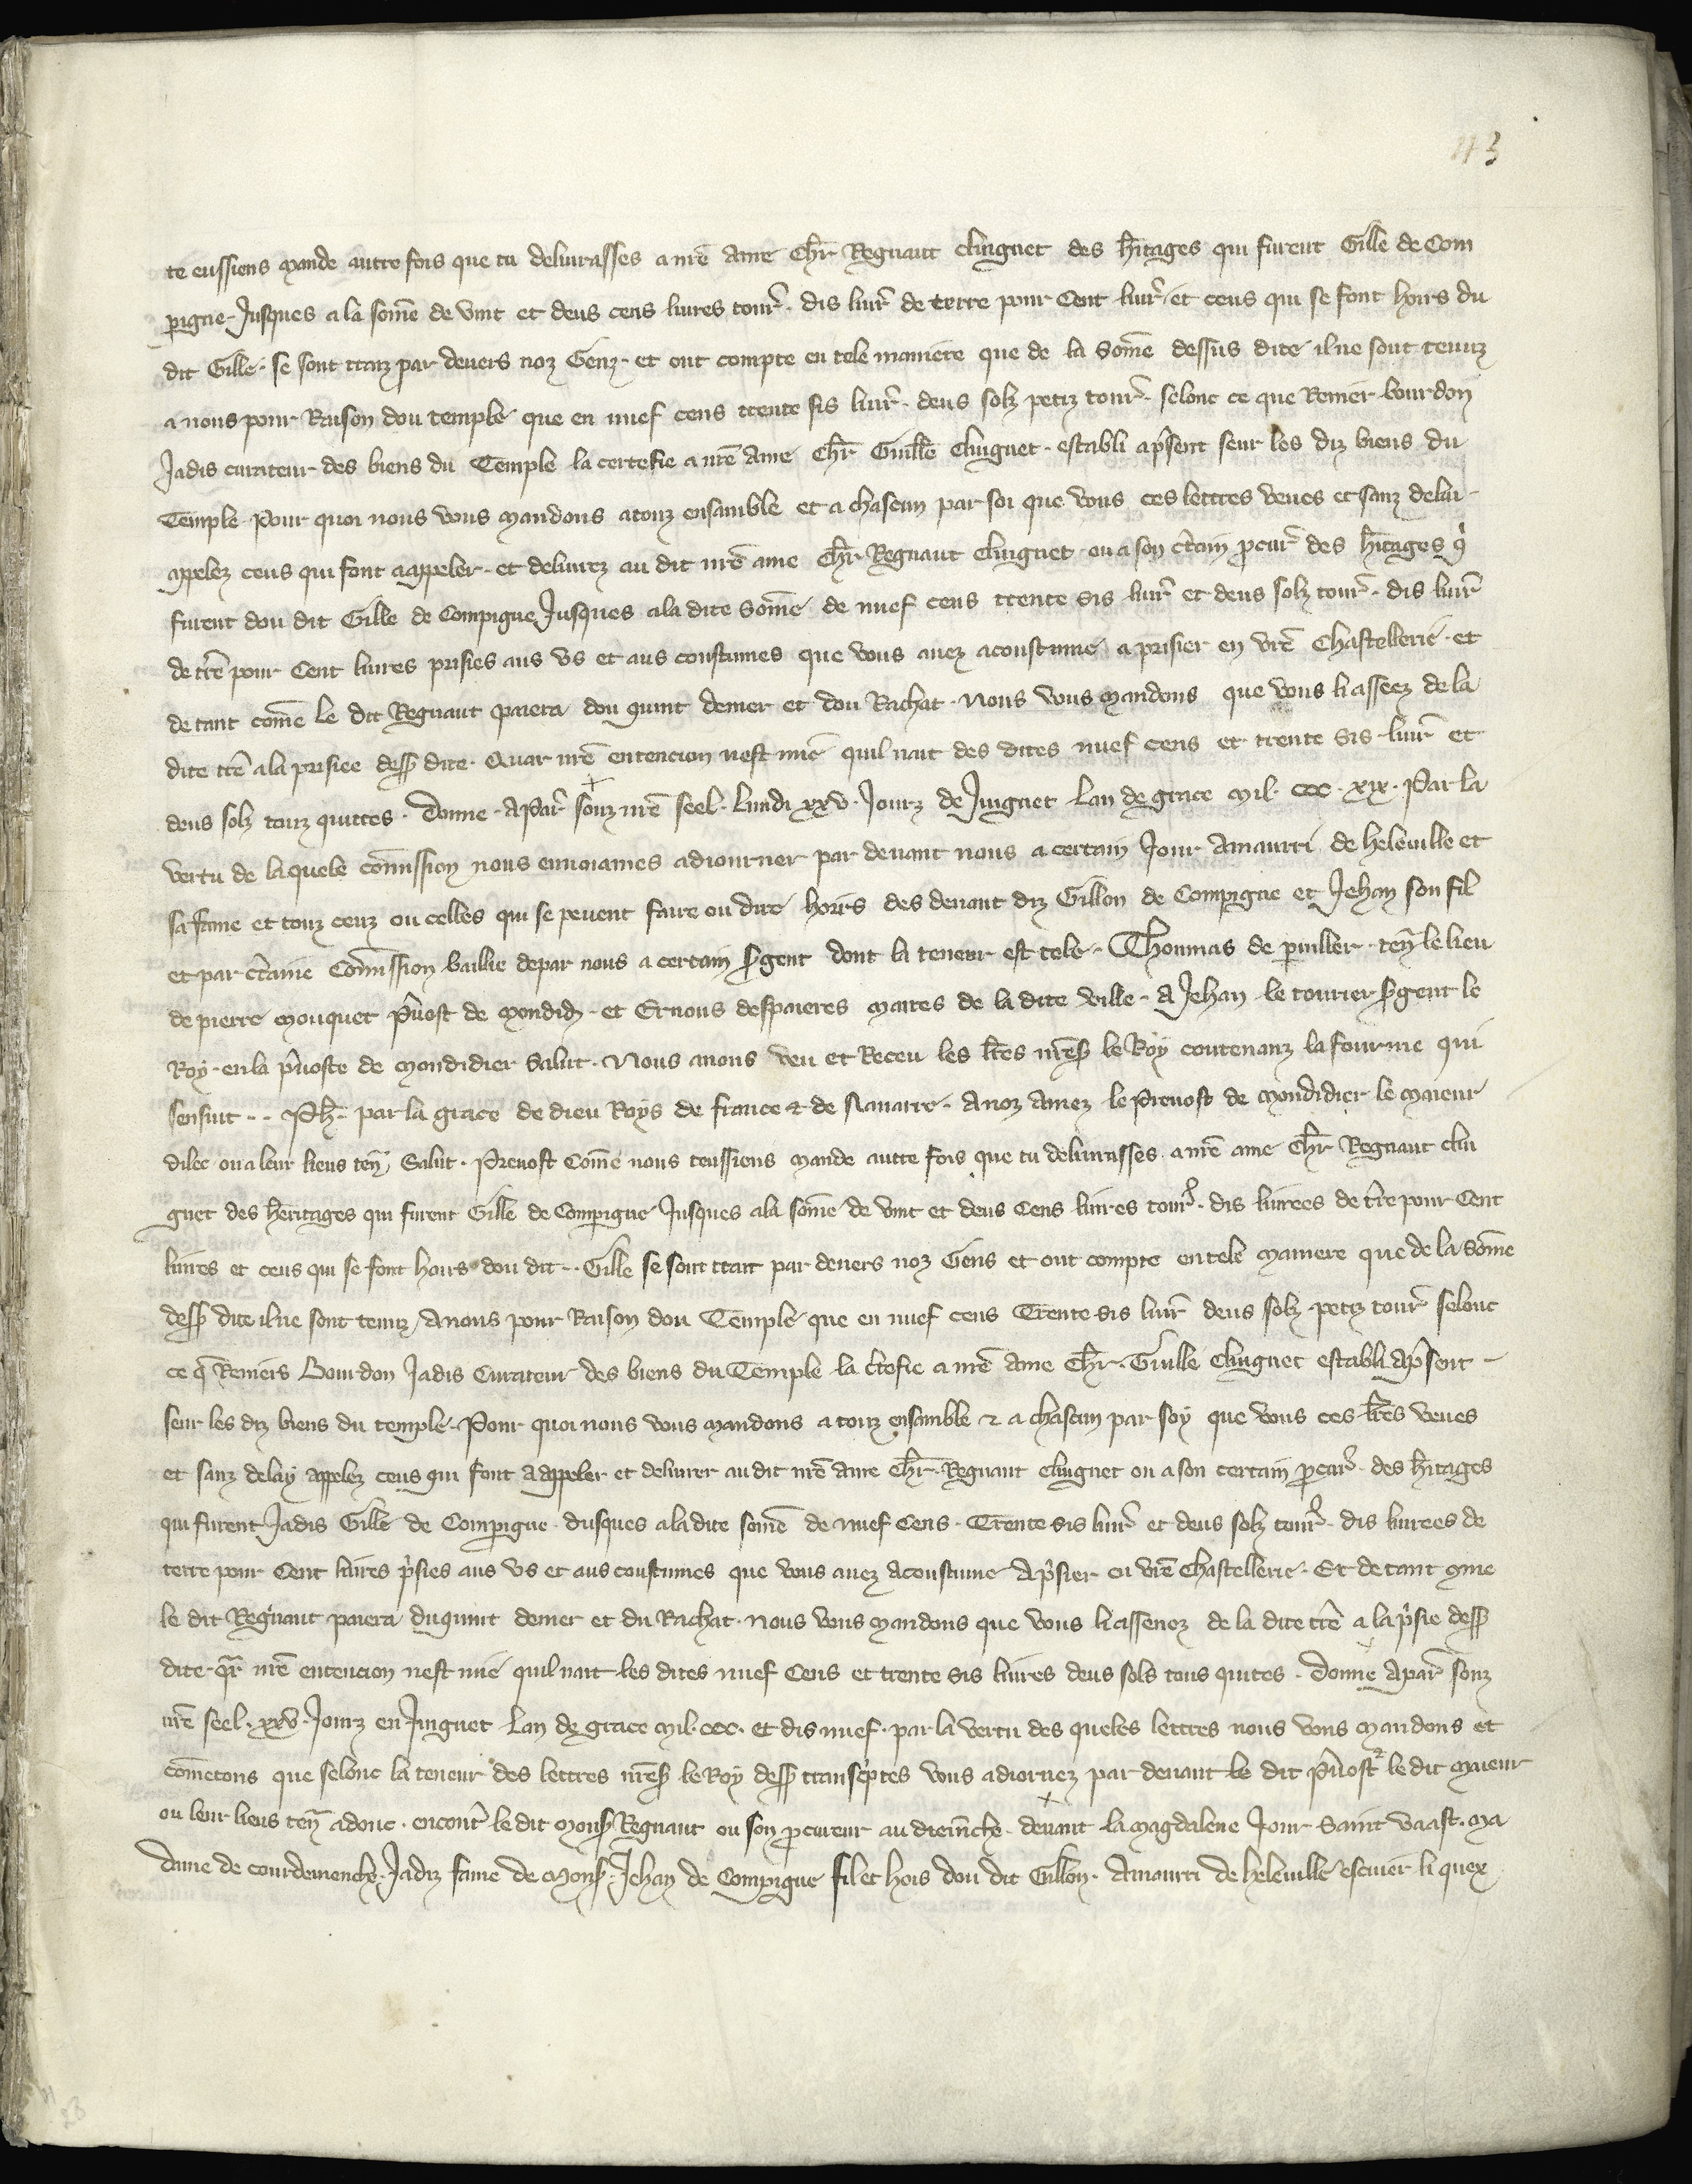 43
te eussiens mande autre fois que tu delivrasses a nr̃e ame Ch̃r Regnaut Cluignet des h̃itages qui furent Gille de Com
pigne Jusques a la som̃e de vint et deus cens livres tour̃ · dis livr̃ de terre pour Cent livr̃ · et ceus qui se font hoirs du
dit Gille · se sont traiz par devers noz Genz · et ont compte en tele maniere que de la Som̃e dessus dite il ne sont tenuz
a nous pour Raison dou temple que en nuef cens trente sis livr̃ · deus solz petiz tour̃ · selonc ce que Renier bourdon
Jadis curateur des biens du Temple la certefie a nr̃e Ame Ch̃r Guill̃e Cluignet · establi ap̃sent seur les diz biens du
Temple · Pour quoi nous vous mandons a touz ensamble et a chascun par soi que vous ces lettres veues et sanz delai ·
appelez ceus qui font a appeler · et delivrez au dit nr̃e ame Ch̃r Regnaut Cluignet · ou a son c̃tain p̃cur̃ des h̃itages q̃
furent dou dit Gille de Compigne Jusques a la dite Som̃e de nuef cens trente sis livr̃ et deus solz tour̃ · dis livr̃
de tr̃e pour Cent livres prisies aus us et aus coustumes que vous avez acoustume a prisier en vr̃e Chastellerie · et
de tant com̃e le dit Regnaut paiera dou quint denier et dou Rachat · Nous vous mandons que vous li asseez de la
dite tr̃e a la prisiee dess̃ dite · Quar nr̃e entencion nest mie quil nait des dites nuef cens et trente sis livr̃ et
deus solz touz quittes · Donne · A Par̃ souz nr̃e seel · Lundi xxv · Jourz de Juignet Lan de grace mil · ccc · xix · Par la
vertu de laquele com̃ission nous envoiames adiourner par devant nous a certain Jour Amaurri de heleville et
sa fame et touz ceuz ou celles qui se pevent faire ou dire hoirs des devant diz Gillon de Compigne et Jehan son fil
et par c̃taine Com̃ission baillie de par nous a certain s̃gent dont la teneur est tele · Thoumas de puiller · teñ le lieu
de pierre mouquet p̃vost de mondid̃ · et Ernous despaieres maires de la dite ville · A Jehan le tourier s̃gent le
Roy · en la p̃voste de mondidier Salut · Nous avons veu et Receu les lr̃es nr̃es̃ le Roy contenanz la fourme qui
sensuit · · Ph̃ · par la grace de dieu Roys de france & de Navarre · A noz Amez le Prevost de mondidier le maieur
dilec ou a leur lieus teñ Salut · Prevost Com̃e nous teussiens mande autre fois que tu delivrasses a nr̃e ame Ch̃r Regnaut clui
gnet des heritages qui furent Gille de Compigne Jusques a la som̃e de vint et deus Cens livres tour̃ · dis livrees de tr̃e pour Cent
livres et ceus qui se font hoirs dou dit · · Gille se sont trait par devers noz Gens et ont compte en tele maniere que de la som̃e
dess̃ dite il ne sont tenuz A nous pour Raison dou Temple que en nuef cens Trente sis livr̃ deus solz petiz tour̃ selonc
ce q̃ Reniers Bourdon Jadis Curateur des biens du Temple la c̃tefie a nr̃e Ame Ch̃r · Guille Cluignet establi Ap̃sent ·
seur les diz biens du temple · Pour quoi nous vous mandons a touz ensamble & a chascun par soy que vous ces lr̃es veues
et sanz delay appelez ceus qui font a appeler et delivrer au dit nr̃e ame Ch̃r · Regnaut Cluignet ou a son certain p̃cur̃ · des h̃itages
qui furent Jadis Gille de Compigne · dusques a la dite som̃e de nuef Cens · Trente sis livr̃ et deus solz tour̃ · dis livrees de
terre pour Cent livres p̃sies aus us et aus coustumes que vous avez Acoustume Ap̃sier en vr̃e Chastellerie · Et de tant 9me
le dit Regnaut paiera du quint denier et du Rachat · nous vous mandons que vous li assenez de la dite tr̃e a la p̃sie dess̃
dite · q̃r nr̃e entencion nest mie quil nait les dites nuef Cens et trente sis livres deus sols tous quites · donne A par̃ souz
nr̃e seel · xxv · Jourz en Juignet Lan de grace mil · ccc · et dis nuef · par la vertu des queles lettres nous vous mandons et
com̃etons que selonc la teneur des lettres nr̃es̃ le Roy dess̃ transc̃ptes vous adiornez par devant le dit p̃vost & le dit maieur
ou leur lieus teñ adonc · encont̃ le dit mons̃ Regnaut ou son p̃cureur au diem̃che · devant la Magdalene Jour Saint Vaast · Ma
dame de courdemenche · Jadiz fame de Mons̃ · Jehan de Compigne fil et hois dou dit Gillon · Amaurri de heleville escuier li quex